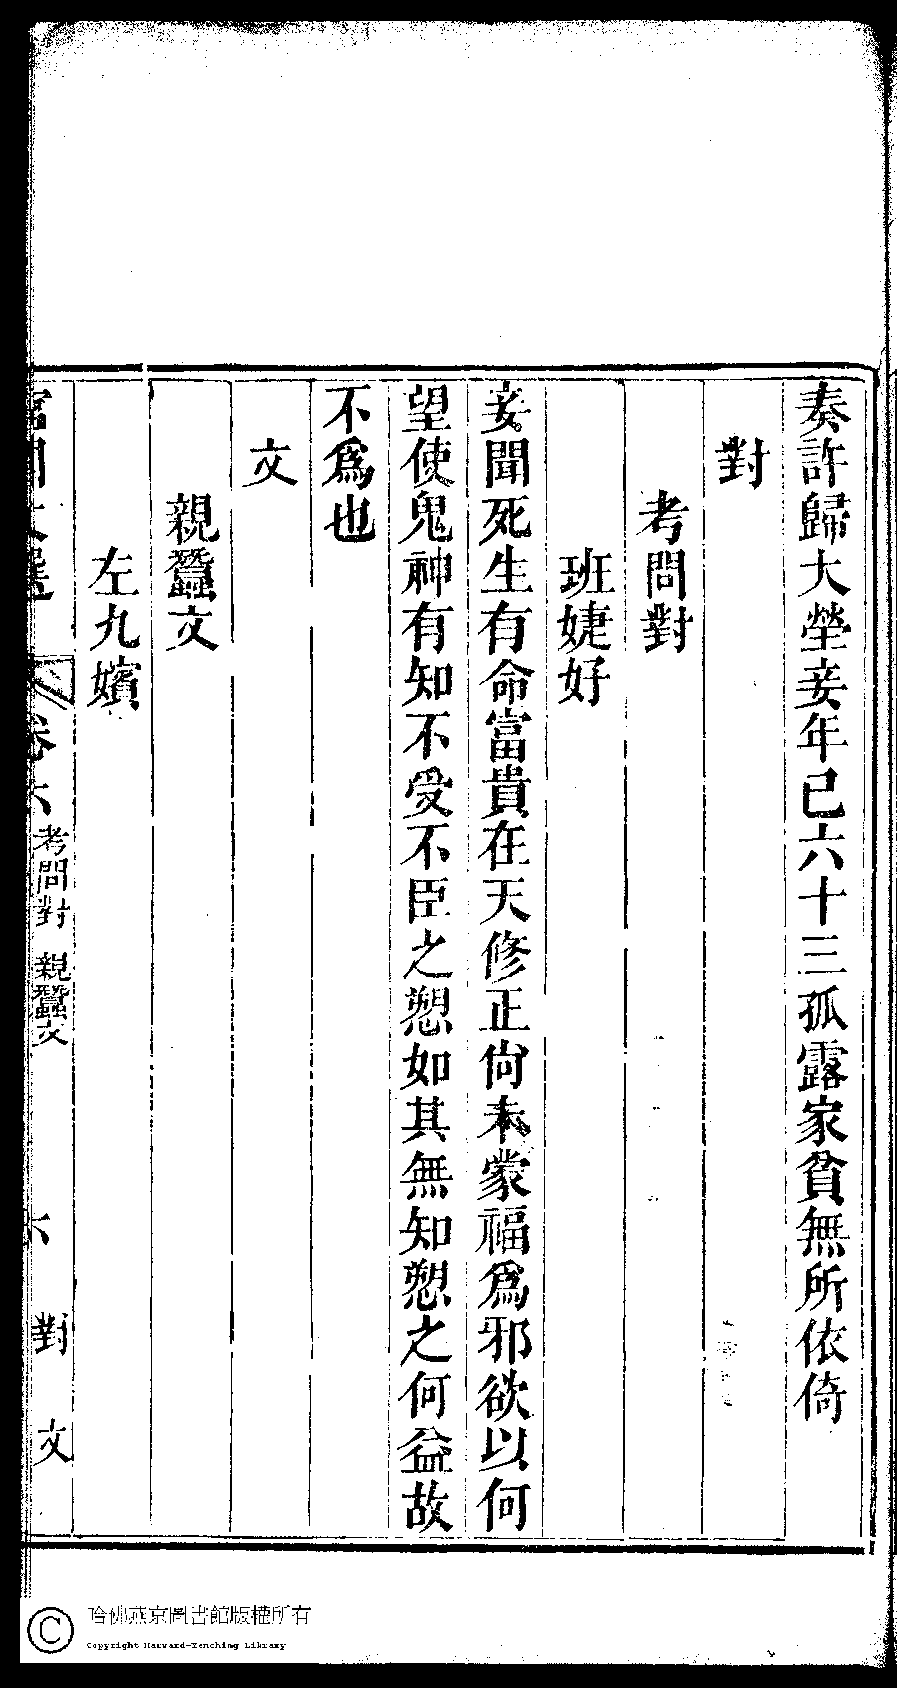 奏許歸大塋妾年已六十三孤露家貧無所依倚
對
考問對
班婕妤
妾聞死生有命富貴在天修正尙未蒙福爲邪欲以何
望使鬼神有知不受不臣之愬如其無知愬之何益故
不爲也
文
親蠶文
左九嬪
宮閨文選 卷六 考問對 親蠶文 六 對 文
哈佛燕京圖書館版權所有
Copyright Harvard-Yenching Library